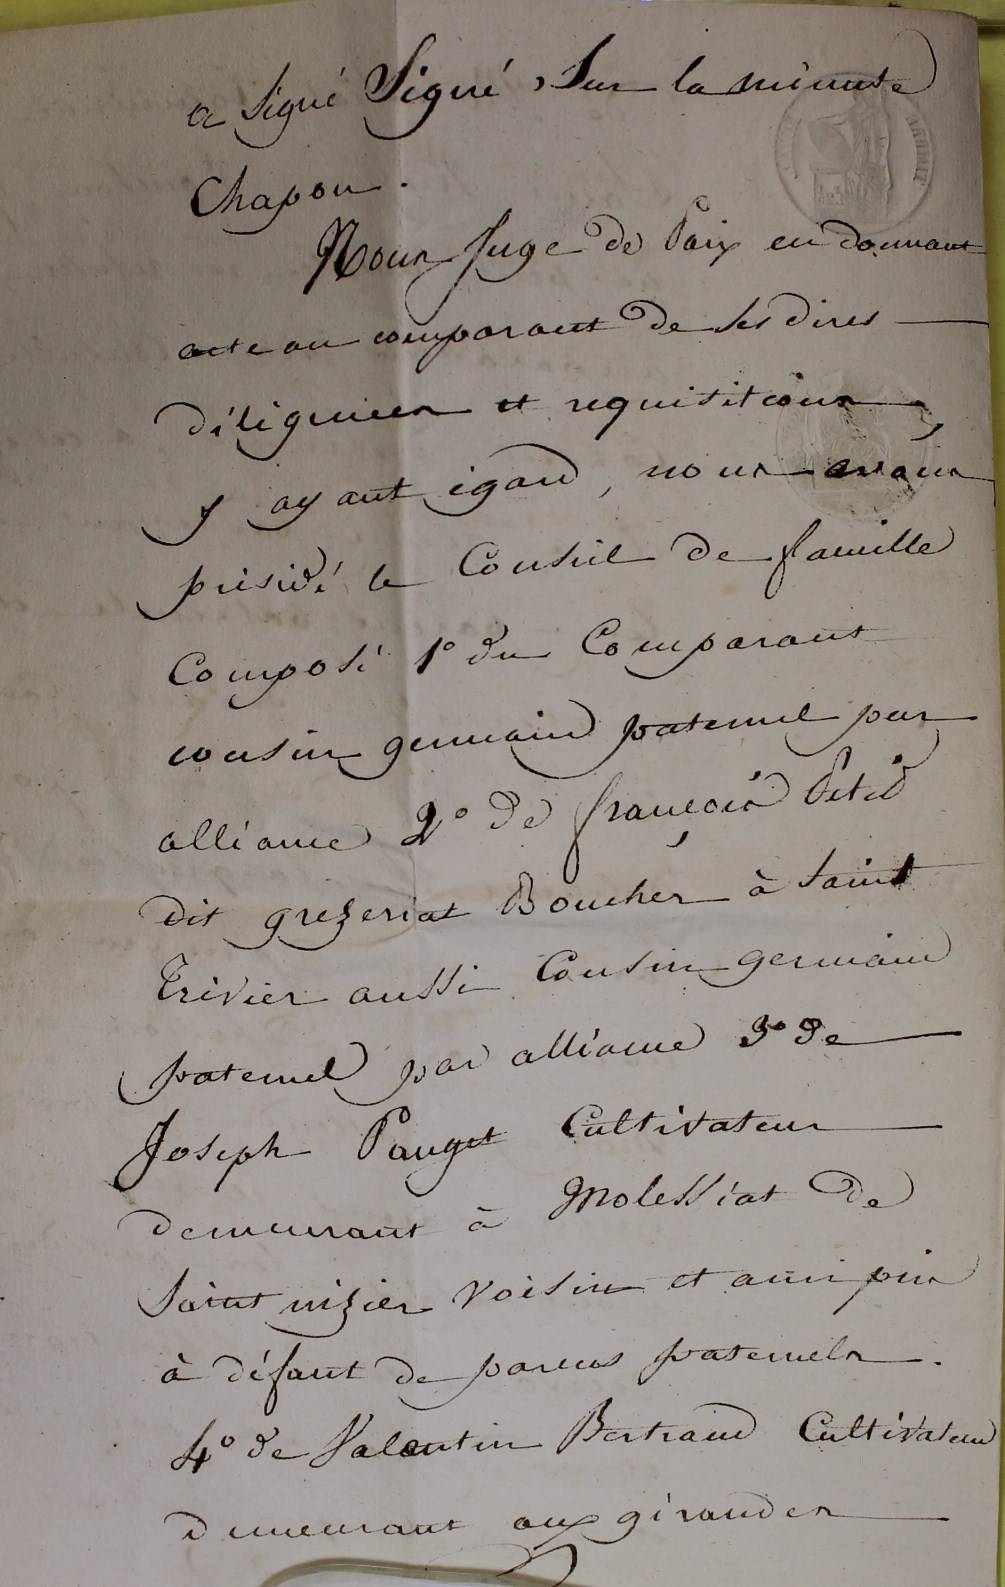 a signé Signé, Sur la minute
Chapon.
Nous Juge de Paix en donnant
acte au comparant de ses dires
déligences et requisitions,
y ayant égard, nous avons
présidé le Conseil de famille
Composé 1° du Comparant
cousin germain paternel par
alliance 2° de françois Petit
dit grezeriat Boucher à Saint
Trivier aussi Cousin germain
paternel par alliance 3° de
Joseph Pauget Cultivateur
demeurant à Molessiat de
Saint nizier voisin et ami pris
à défaut de parens paternels.
4° de Valentin Bertrand Cultivateur
demeurant aux girandes